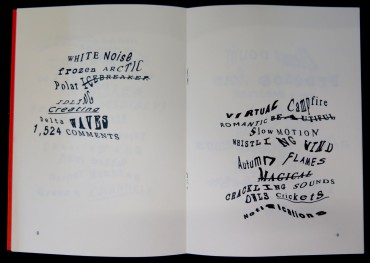 WHITE Noise
frozen ARCTIC
Polar ICEBREAKER
IDLING
Creating
Delta WAVES
1,524 COMMENTS
VIRTUAL Campfire
ROMANTIC BEAUTIFUL
Slow MOTION
WHISTLING WIND
Autumn FLAMES
MAGICAL
CRACKLING SOUNDS
OWLS Crickets
Notifications